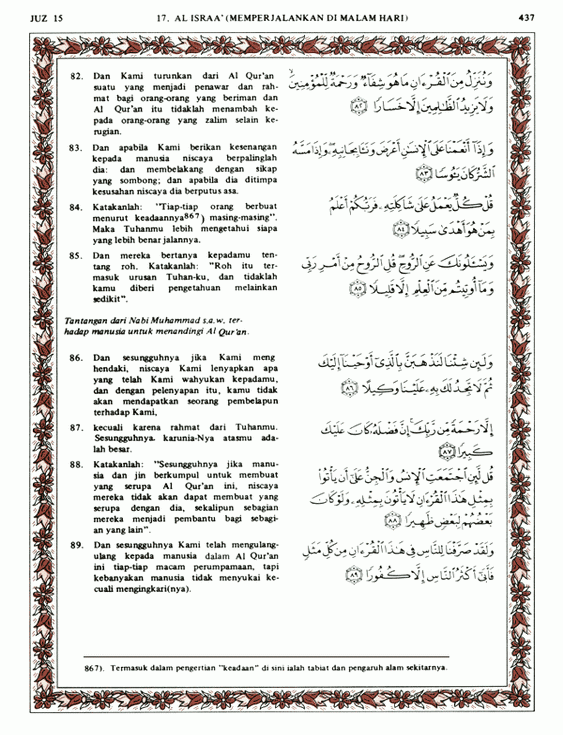 JUZ 15 17. AL ISRAA' (MEMPERJALANKAN DI MALAM HARI) 437
82. Dan Kami turunkan dari Al Qur'an
suatu yang menjadi penawar dan rah-
mat bagi orang-orang yang beriman dan
Al Qur'an itu tidaklah menambah ke-
pada orang-orang yang zalim selain ke-
rugian.
وَنُنَزِّلُ مِنَ ٱلْقُرْءَانِ مَا هُوَ شِفَآءٌ وَرَحْمَةٌ لِّلْمُؤْمِنِينَ
وَلَا يَزِيدُ ٱلظَّٰلِمِينَ إِلَّا خَسَارًا ﴿٨٢﴾
83. Dan apabila Kami berikan kesenangan
kepada manusia niscaya berpalinglah
dia: dan membelakang dengan sikap
yang sombong; dan apabila dia ditimpa
kesusahan niscaya dia berputus asa.
وَإِذَآ أَنْعَمْنَا عَلَى ٱلْإِنسَٰنِ أَعْرَضَ وَنَـَٔا بِجَانِبِهِۦ وَإِذَا مَسَّهُ
ٱلشَّرُّ كَانَ يَـُٔوسًا ﴿٨٣﴾
84. Katakanlah: "Tiap-tiap orang berbuat
menurut keadaannya867) masing-masing".
Maka Tuhanmu lebih mengetahui siapa
yang lebih benar jalannya.
قُلْ كُلٌّ يَعْمَلُ عَلَىٰ شَاكِلَتِهِۦ فَرَبُّكُمْ أَعْلَمُ
بِمَنْ هُوَ أَهْدَىٰ سَبِيلًا ﴿٨٤﴾
85. Dan mereka bertanya kepadamu ten-
tang roh. Katakanlah: "Roh itu ter-
masuk urusan Tuhan-ku, dan tidaklah
kamu diberi pengetahuan melainkan
sedikit".
وَيَسْـَٔلُونَكَ عَنِ ٱلرُّوحِ قُلِ ٱلرُّوحُ مِنْ أَمْرِ رَبِّى
وَمَآ أُوتِيتُم مِّنَ ٱلْعِلْمِ إِلَّا قَلِيلًا ﴿٨٥﴾
Tantangan dari Nabi Muhammad s.a.w. ter-
hadap manusia untuk menandingi Al Qur'an.
86. Dan sesungguhnya jika Kami meng
hendaki, niscaya Kami lenyapkan apa
yang telah Kami wahyukan kepadamu,
dan dengan pelenyapan itu, kamu tidak
akan mendapatkan seorang pembelapun
terhadap Kami,
وَلَئِن شِئْنَا لَنَذْهَبَنَّ بِٱلَّذِىٓ أَوْحَيْنَآ إِلَيْكَ
ثُمَّ لَا تَجِدُ لَكَ بِهِۦ عَلَيْنَا وَكِيلًا ﴿٨٦﴾
87. kecuali karena rahmat dari Tuhanmu.
Sesungguhnya. karunia-Nya atasmu ada-
lah besar.
إِلَّا رَحْمَةً مِّن رَّبِّكَ إِنَّ فَضْلَهُۥ كَانَ عَلَيْكَ
كَبِيرًا ﴿٨٧﴾
88. Katakanlah: "Sesungguhnya jika manu-
sia dan jin berkumpul untuk membuat
yang serupa Al Qur'an ini, niscaya
mereka tidak akan dapat membuat yang
serupa dengan dia, sekalipun sebagian
mereka menjadi pembantu bagi sebagi-
an yang lain".
قُل لَّئِنِ ٱجْتَمَعَتِ ٱلْإِنسُ وَٱلْجِنُّ عَلَىٰٓ أَن يَأْتُوا۟
بِمِثْلِ هَٰذَا ٱلْقُرْءَانِ لَا يَأْتُونَ بِمِثْلِهِۦ وَلَوْ كَانَ
بَعْضُهُمْ لِبَعْضٍ ظَهِيرًا ﴿٨٨﴾
89. Dan sesungguhnya Kami telah mengulang-
ulang kepada manusia dalam Al Qur'an
ini tiap-tiap macam perumpamaan, tapi
kebanyakan manusia tidak menyukai ke-
cuali mengingkari(nya).
وَلَقَدْ صَرَّفْنَا لِلنَّاسِ فِى هَٰذَا ٱلْقُرْءَانِ مِن كُلِّ مَثَلٍ
فَأَبَىٰٓ أَكْثَرُ ٱلنَّاسِ إِلَّا كُفُورًا ﴿٨٩﴾
867). Termasuk dalam pengertian "keadaan" di sini ialah tabiat dan pengaruh alam sekitarnya.